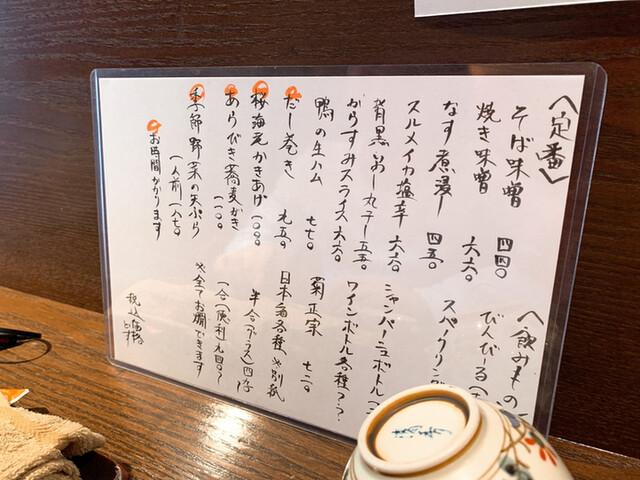 〈定番〉
そば味噌 四四〇
焼き味噌 六六〇
なす煮浸し 四四〇
スルメイカ塩辛 六六〇
背黒いわし丸干し 五五〇
からすみスライス 六六〇
鴨の生ハム 七七〇
だし巻き 九五〇
桜海老かきあげ 一一〇〇
あらびき蕎麦かき 一一〇〇
季節野菜の天ぷら
(一人前) 一八七〇
お時間かかります
〈飲みもの
びーびーる
スパークリング
シャンパーニュボトル
ワインボトル各種??
菊正宗 七二〇
日本酒各種 別紙
半合(グラス)四
一合(徳利)九四〇〜
※全てお燗できます
税込価格
です